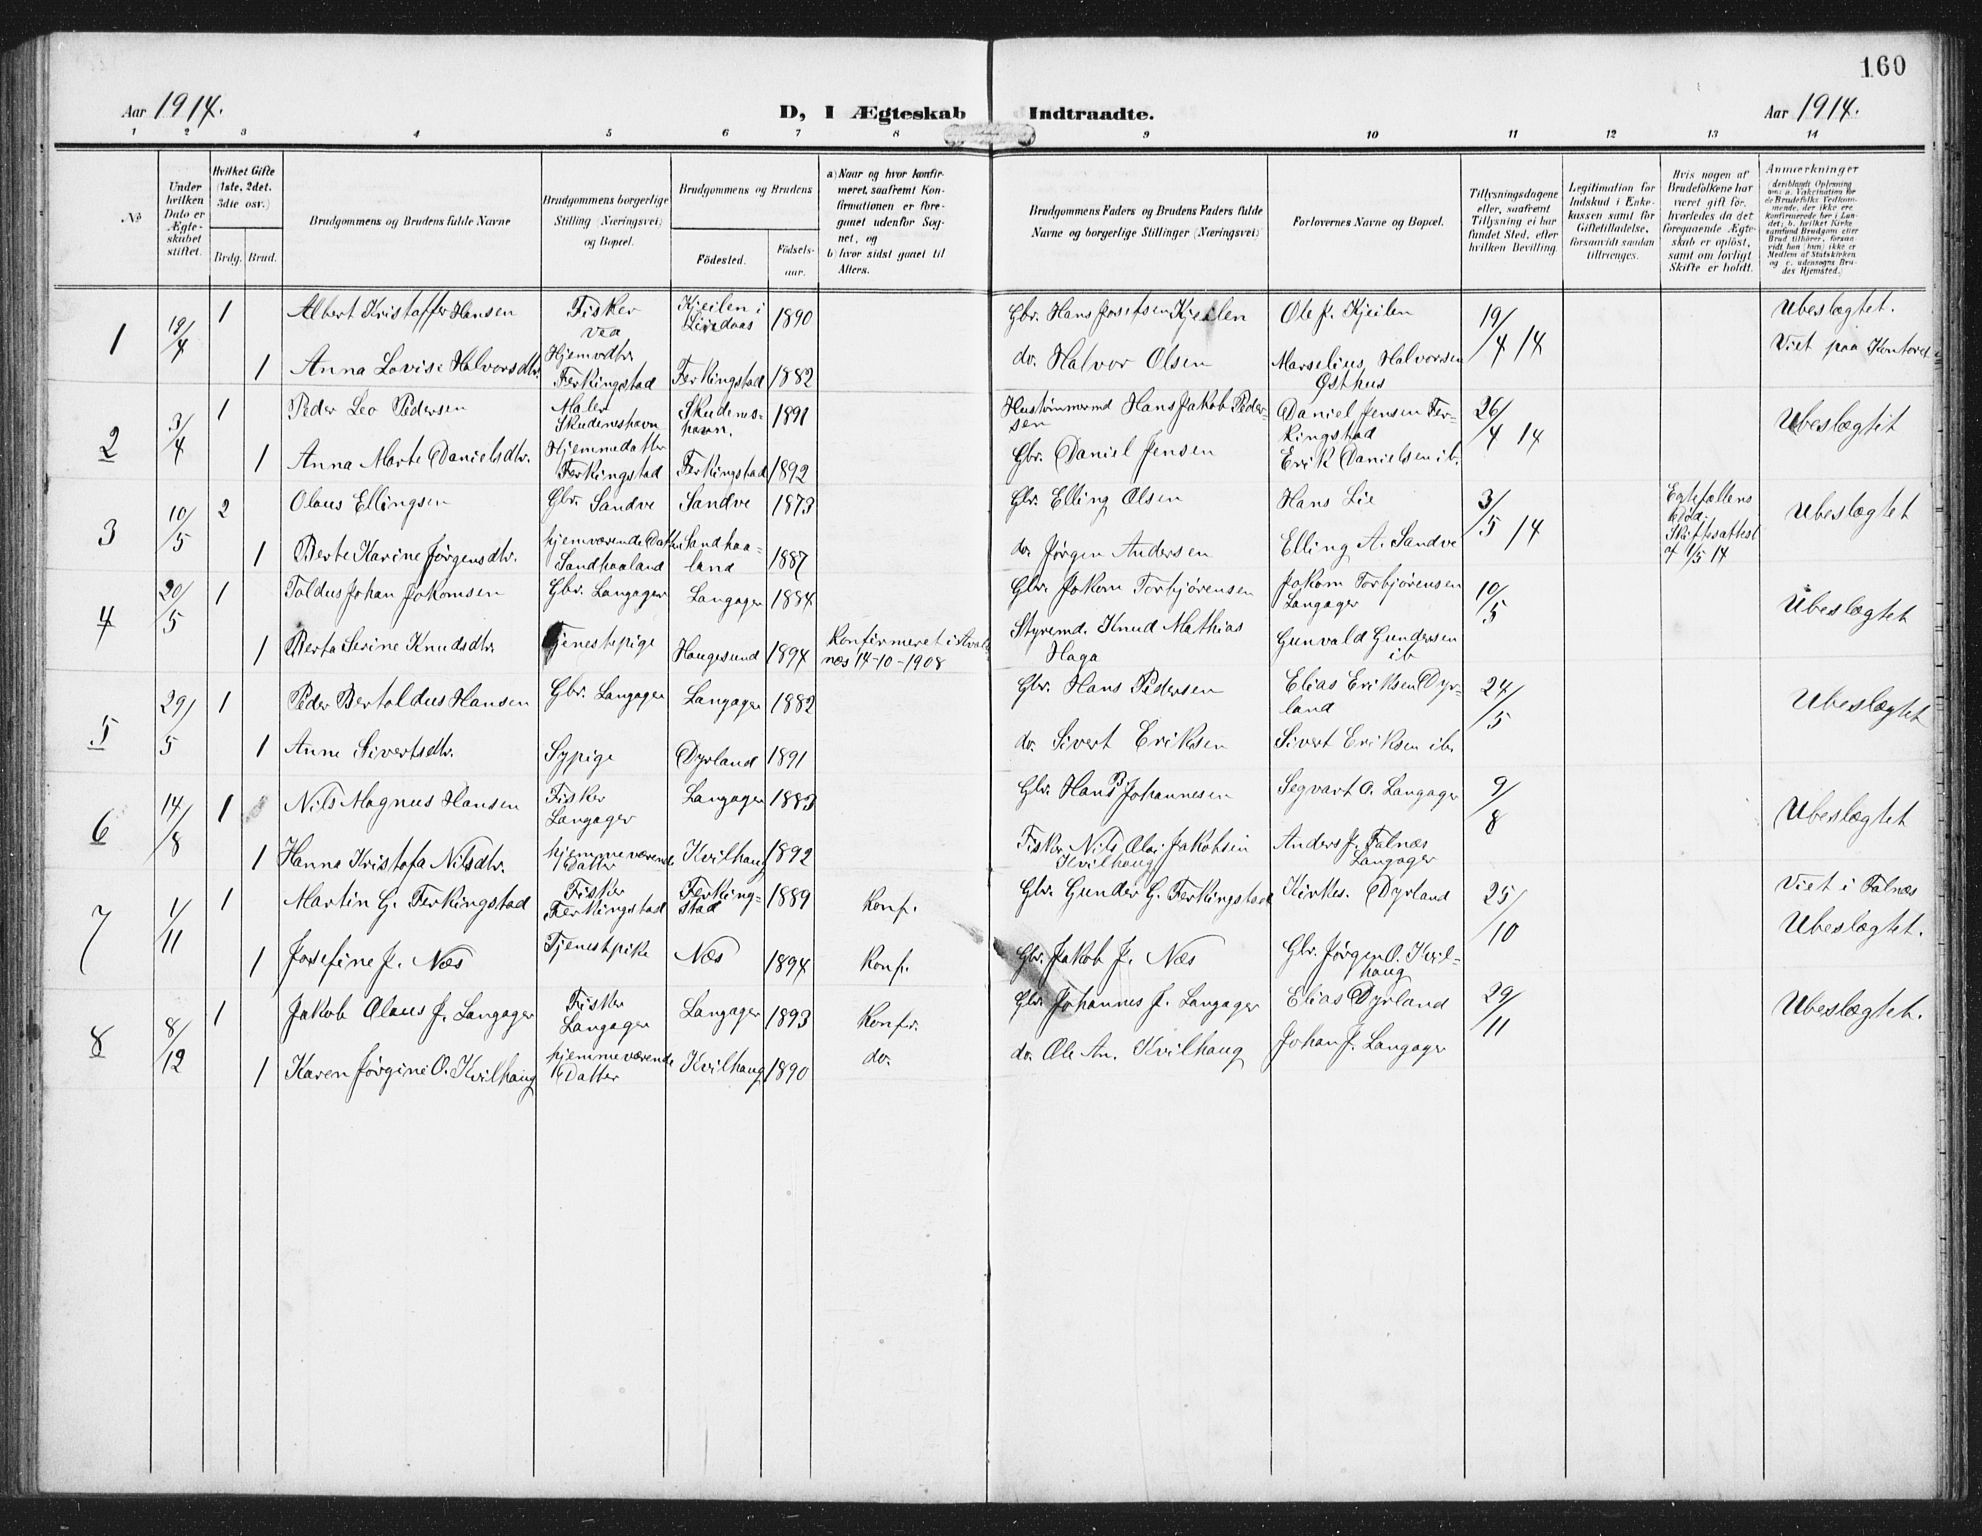 160
Aar 1914.
D, I Ægteskab Indtraadte.
Aar 1914.
1 2 3 4 5 6 7 8 9 10 11 12 13 14
No
Under hvilken Dato er Ægteskabet stiftet.
Hvilket Gifte (1ste, 2det. 3die osv.)
Brdg. Brud.
Brudgommens og Brudens fulde Navne
Brudgommens borgerlige Stilling (Næringsvei) og Bopæl.
Brudgommens og Brudens
Fødested.
Fødsels-aar.
a) Naar og hvor konfirmeret, saafremt Konfirmationen er foregaaet udenfor Sognet, og
b) hvor sidst gaaet til Alters.
Brudgommens Faders og Brudens Faders fulde Navne og borgerlige Stillinger (Næringsvei)
Forlovernes Navne og Bopæl.
Tillysningsdagene eller, saafremt Tillysning ei har fundet Sted, efter hvilken Bevilling.
Legitimation for Indskud i Enkekassen samt for Giftetilladelse, forsaavidt saadan tiltrænges.
Hvis nogen af Brudefolkene har været gift før, hvorledes da det foregaaende Ægteskab er opløst, samt om lovligt Skifte er holdt.
Anmærkninger
deriblandt Oplysning om: a. Vakcination for de Brudefolks Vedkommende, der ikke ere konfirmerede her i Landet; b. hvilket Kirkesamfund Brudgom eller Brud tilhører, forsaavidt han (hun) ikke er Medlem af Statskirken og c. udensogns Brudes Hjemsted.
1 19/4 1 Albert Kristoffer Hansen Fisker Kjeilen i 1890 Gbr. Hans Josefsen Kjeilen Ole J. Kjeilen 19/4 14 Ubeslægtet.
Viet paa Kontoret
1 Anna Lovise Halvorsdtr. Hjemvdtr. Ferkingstad Ferkingstad 1882 do. Halvor Olsen Marselius Halvorsen Østhus
2 3/4 1 Peder Leo Pedersen Maler Skudeneshavn Skudenes-havn. 1891 Hustømmermd Hans Jakob Peder-sen Daniel Jensen Fer-kingstad 26/4 14 Ubeslægtet
1 Anna Marte Danielsdtr. Hjemmedatter Ferkingstad Ferkingstad 1892 Gbr. Daniel Jensen Erik Danielsen ib.
3 10/5 2 Olaus Ellingsen Gbr. Sandve Sandve 1873 Gbr. Elling Olsen Hans Lie 3/5 14 Egtefællens Død. Skifteattest af 1/5 14 Ubeslægtet
1 Berte Karine Jørgensdtr. hjemværende Datter Sandhaaland Sandhaa-land 1887 do. Jørgen Andersen Elling A. Sandve
4 20/5 1 Toldus Johan Jakomsen Gbr. Langager Langager 1884 Gbr. Jakom Torbjørensen Jakom Torbjørensen Langager 10/5 Ubeslægtet
1 Berta Serine Knudsdtr. Tjenestepige Haugesund 1894 Konfirmeret i Avalds-nes 14-10-1908 Styremd. Knud Mathias Haga Gunvald Gundersen ib
5 29/5 1 Peder Bertoldus Hansen Gbr. Langager Langager 1882 Gbr. Hans Pedersen Elias Eriksen Dyr-land 24/5 Ubeslægtet
1 Anne Sivertsdtr. Sypige Dyrland 1891 do. Sivert Eriksen Sivert Eriksen ib.
6 14/8 1 Nils Magnus Hansen Fisker Langager Langager 1883 Gbr. Hans B Johannesen Segvart O. Langager 9/8 Ubeslægtet
1 Hanna Kristofa Nilsdtr. hjemmeværende Datter Kvilhaug 1892 Fisker Nils Olai Jakobsen Kvilhaug Anders J. Falnæs Langager
7 1/11 1 Martin G. Ferkingstad Fisker Ferkingstad Ferking-stad 1889 Konf. Gbr. Gunder G. Ferkingstad Kirkes. Dyrland 25/10 Viet i Falnæs
Ubeslægtet.
1 Josefine J. Næs Tjenestpike Næs 1894 Konf. Gbr. Jakob J. Næs Gbr. Jørgen O. Kvil-haug
8 8/12 1 Jakob Olaus J. Langager Fisker Langager Langager 1893 Konfr. Gbr. Johannes J. Langager Elias Dyrland 29/11 Ubeslægtet.
1 Karen Jørgine O. Kvilhaug hjemmeværende Datter Kvilhaug 1890 do. do. Ole An. Kvilhaug Johan J. Langager